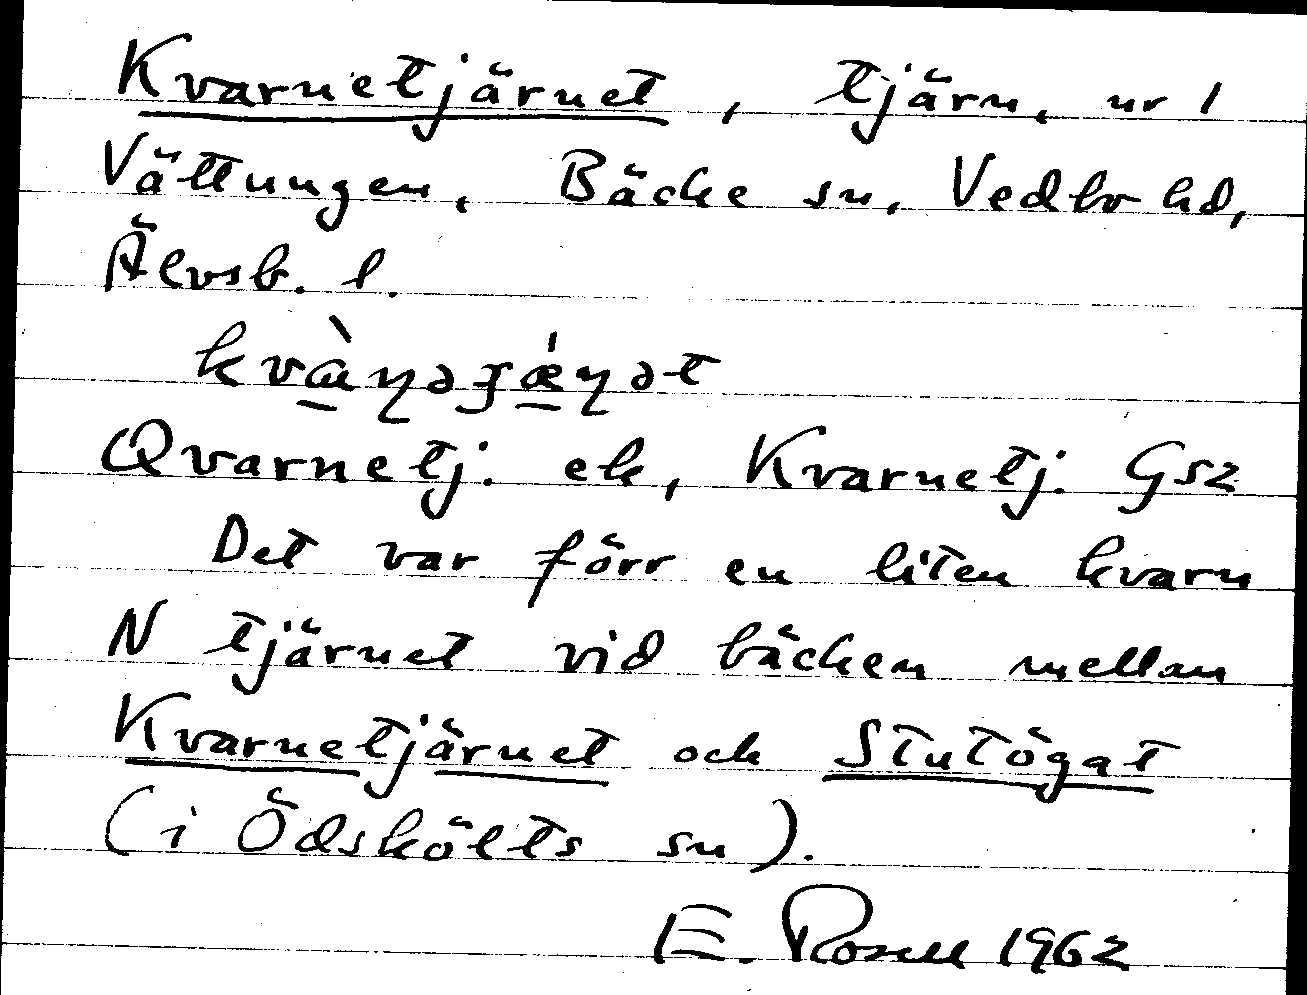 Kvarnetjärnet, tjärn, nr 1
Vättungen, Bäcke sn, Vedbo hd,
Älvsb. l.
kvὰɳəʃǽɳət
Qvarnetj. ek, Kvarnetj. Gsz
Det var förr en liten kvarn
N tjärnet vid bäcken mellan
Kvarnetjärnet och Stutögat
(i Ödskölts sn).
E. Rosell 1962